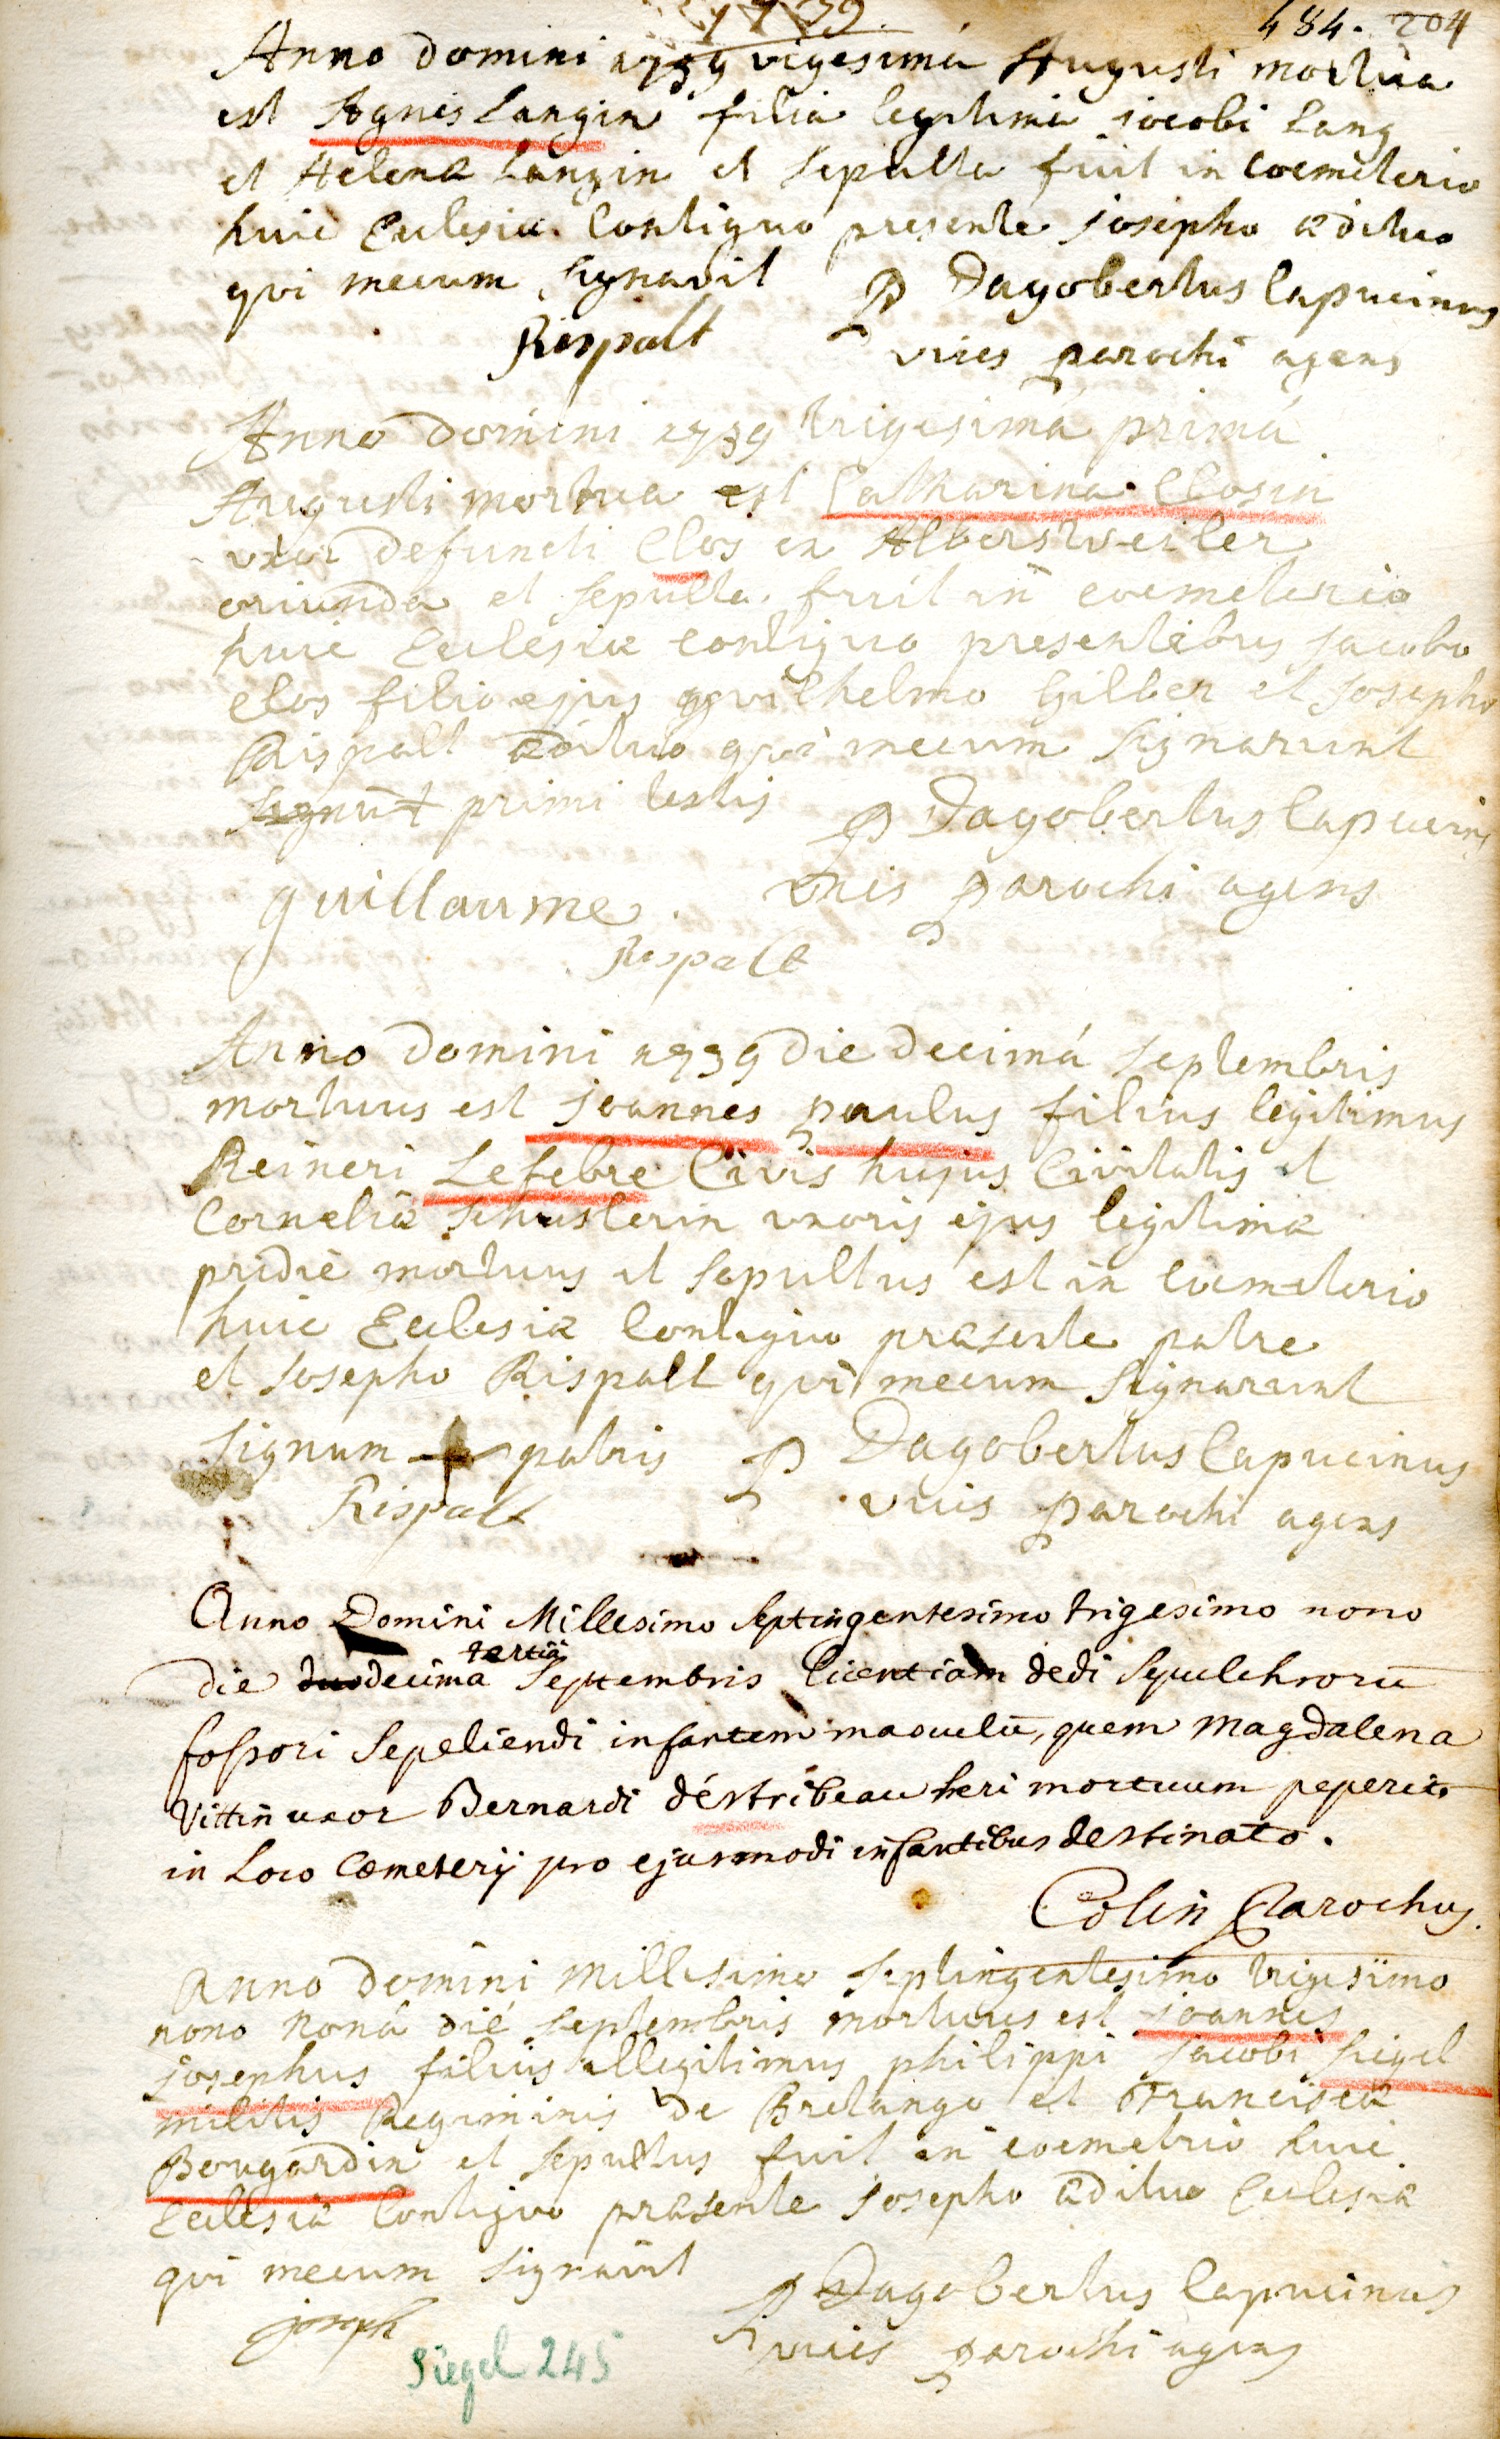 1739.
484. 204
Anno domini 1739 vigesimá Augusti mortua
est Agnes Langin filia legitima jacobi Lang
et Helenæ Langin et Sepulta fuit in coemeterio
huic Eclesiæ Contiguo presente josepho ædituo
qvi mecum signavit P Dagobertus Capucinus
Rispalt vices parochi agens
Anno domini 1739 trigesimá primá
Augusti mortua est Catharina Closin
uxor defuncti Clos ex Alberswveiler
oriunda et sepulta fuit in coemeterio
huic Eclesiæ contiguo presentibus jacobo
clos filio ejus gvilhelmo Gilber et josepho
Rispalt ædituo qvi mecum signarunt
signū + primi testis P Dagobertus Capucinus
guillaume. vices parochi agens
Rispalt
Anno domini 1739 die decimá septembris
mortuus est joannes paulus filius legitimus
Reineri Lefebre Civis hujus Civitatis et
Corneliæ schusterin uxoris ejus legitimæ
pridie mortuus et sepultus est in coemeterio
huic Eclesiæ Contiguo præsente patre
et josepho Rispalt qvi mecum signarunt
signum + patris P Dagobertus Capucinus
Rispalt vices parochi agens
Anno Domini Millesimo septingentesimo trigesimo nono
tertiâ
die duodecima Septembris licentiam dedi sepulchrorū
fossori sepeliendi infantem masculū, quem Magdalena
Vittin uxor Bernardi déstribeau heri mortuum peperit
in Loco Cœmeterij pro ejusmodi infantibus destinato.
Colin Parochus.
Anno domini millesimo septingentesimo trigesimo
nono noná dié septembris mortuus est joannes
josephus filius illegitimus philippi jacobi siegel
militis Regiminis de Bretange et Franciscæ
Bougardin et sepultus fuit in coemetrio huic
Eclesiæ Contiguo præsente josepho ædituo Eclesiæ
qvi mecum signavit P Dagobertus Capucinus
joseph vices parochi agens
Siegel 245